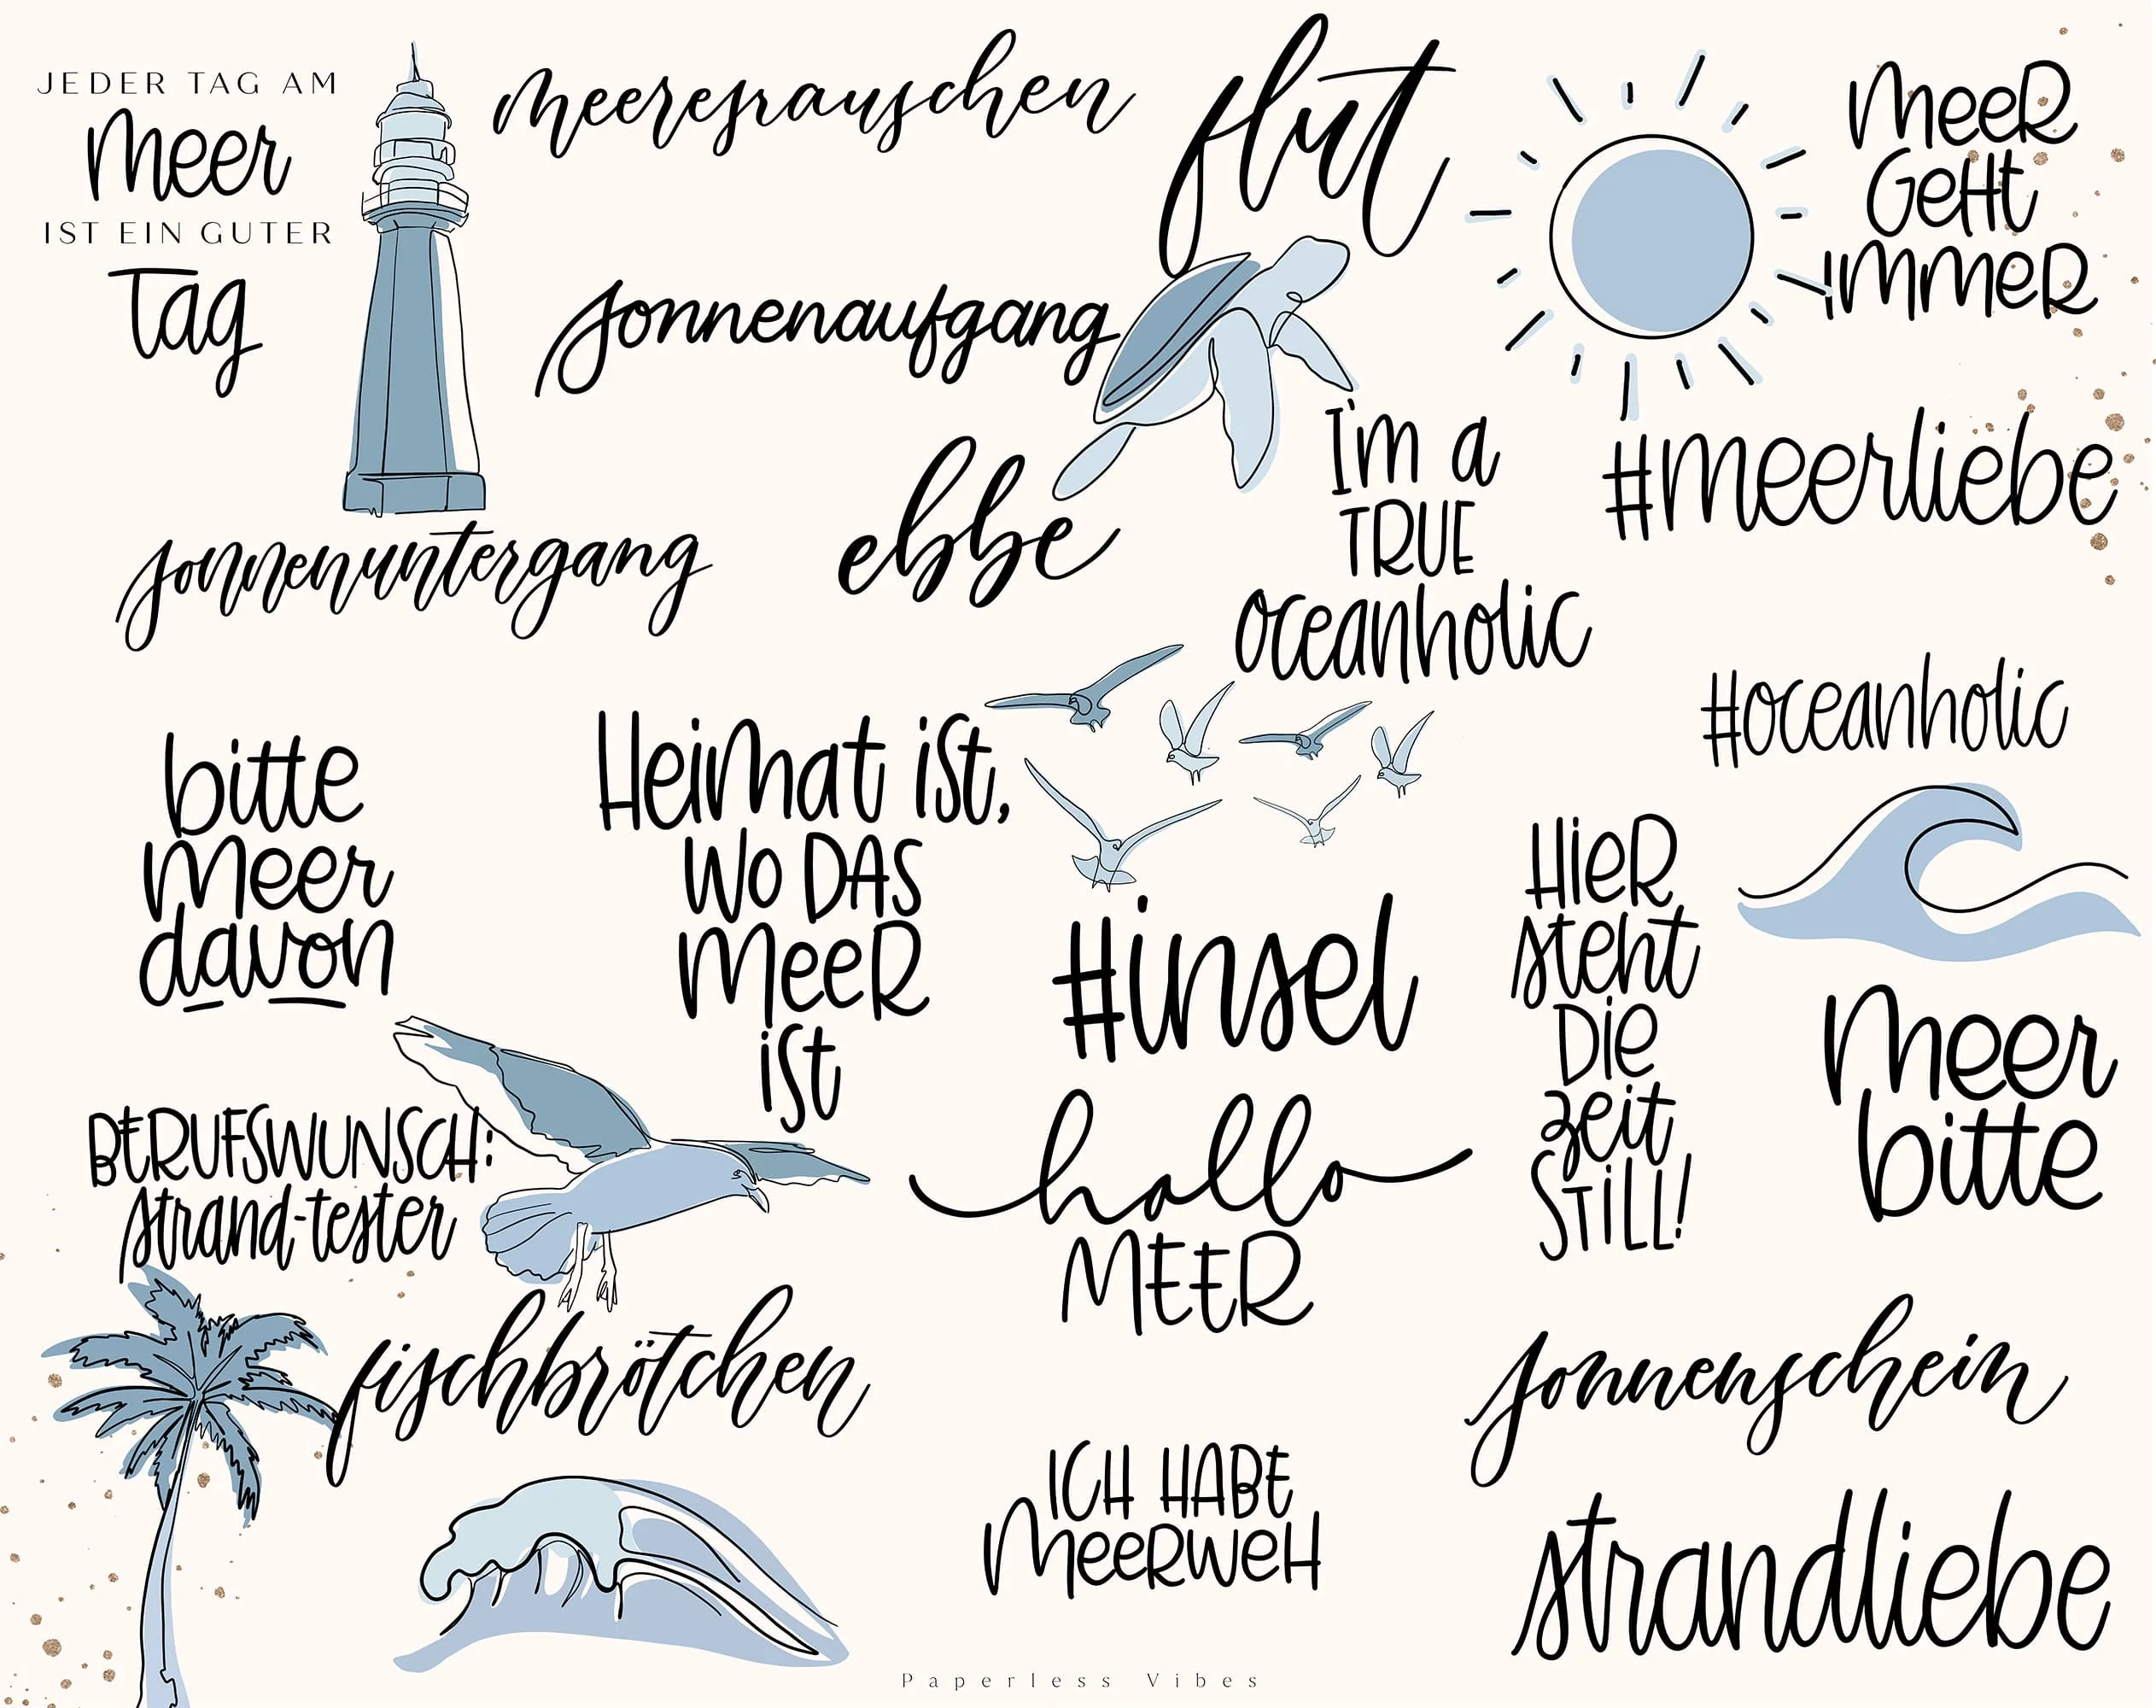 JEDER TAG AM
meer
IST EIN GUTER
Tag
meeresrauschen
flut
MEER
GEHT
IMMER
sonnenaufgang
ebbe
I'm a
TRUE
oceanholic
#meerliebe
sonnenuntergang
#oceanholic
bitte
meer
davon
Heimat ist,
WO DAS
MEER
ist
#insel
HIER
steht
Die
zeit
STILL!
meer
bitte
BERUFSWUNSCH:
strand-tester
hallo
MEER
fischbrötchen
sonnenschein
ICH HABE
MEERWEH
strandliebe
Paperless Vibes